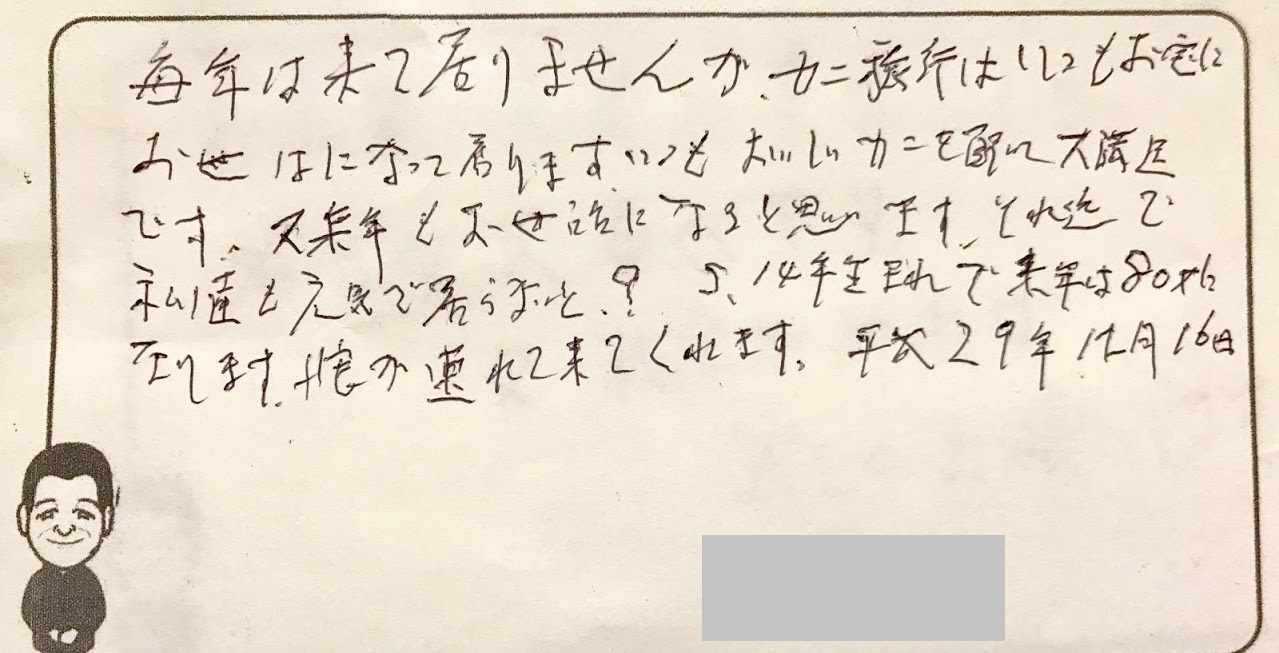 毎年は来て居りませんが、カニ旅行はいつもお宅に
お世はになって居ります、いつもおいしいカニを配して大満足
です、又来年もお世話になると思います、それ迄で
私達も元気で居らないと、? S、14年生まれで来年は80才に
なります、娘が連れて来てくれます、平成29年12月16日